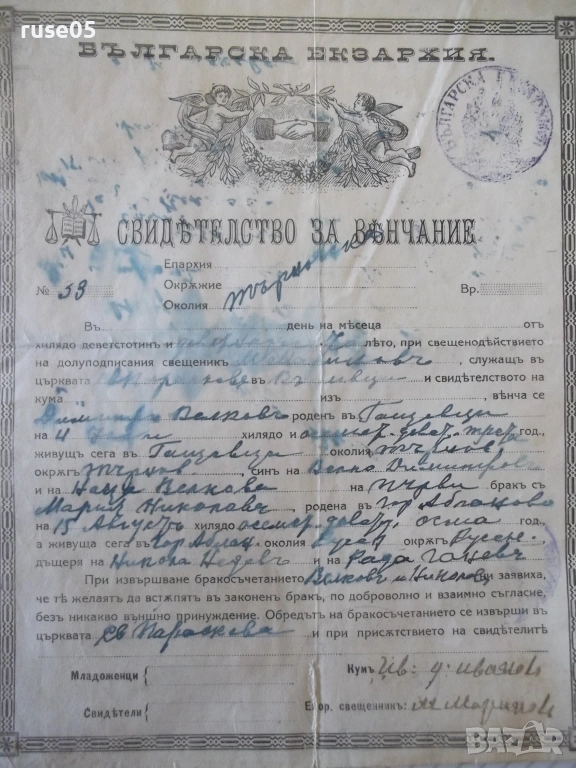 ruse05
БЪЛГАРСКА ЕКЗАРХИЯ.
БЪЛГАРСКА ЕКЗАРХИЯ
СВИДѢТЕЛСТВО ЗА ВѢНЧАНИЕ
Епархия
№ 53 Окрѫжие Вр.
Околия Търновска
Въ день на мѣсеца отъ
хилядо деветстотин и лѣто, при свещенодѣйството
на долуподписания свещеникъ служащъ въ
църквата и свидѣтелството на
кума изъ , вѣнча се
Димитръ Велковъ роденъ въ Ганчевци
на 4 хилядо и осемст. девет. трета год.,
живущъ сега въ Ганчевци околия Търнов.
окрѫгъ Търнов. синъ на Велко Димитровъ
и на Неда Велкова на първи бракъ съ
Мария Николаевъ, родена въ Гор. Абланово
на 15 Августъ хилядо осемст. девет. осма год.,
а живуща сега въ Гор. Аблан. околия Русен. окрѫгъ Русен.
дъщеря на Никола Недевъ и на Рада
При извършване бракосъчетанието Велковъ и Николаевъ заявиха,
че тѣ желаятъ да встѫпятъ въ законенъ бракъ, по доброволно и взаимно съгласие,
безъ никакво външно принуждение. Обредътъ на бракосъчетанието се извърши въ
църквата Св. Параскева и при присѫтствието на свидѣтелитѣ
Младоженци Кумъ: Цв. Д. Иванов
Свидѣтели Енор. свещеникъ: М Маринов
BAZAR